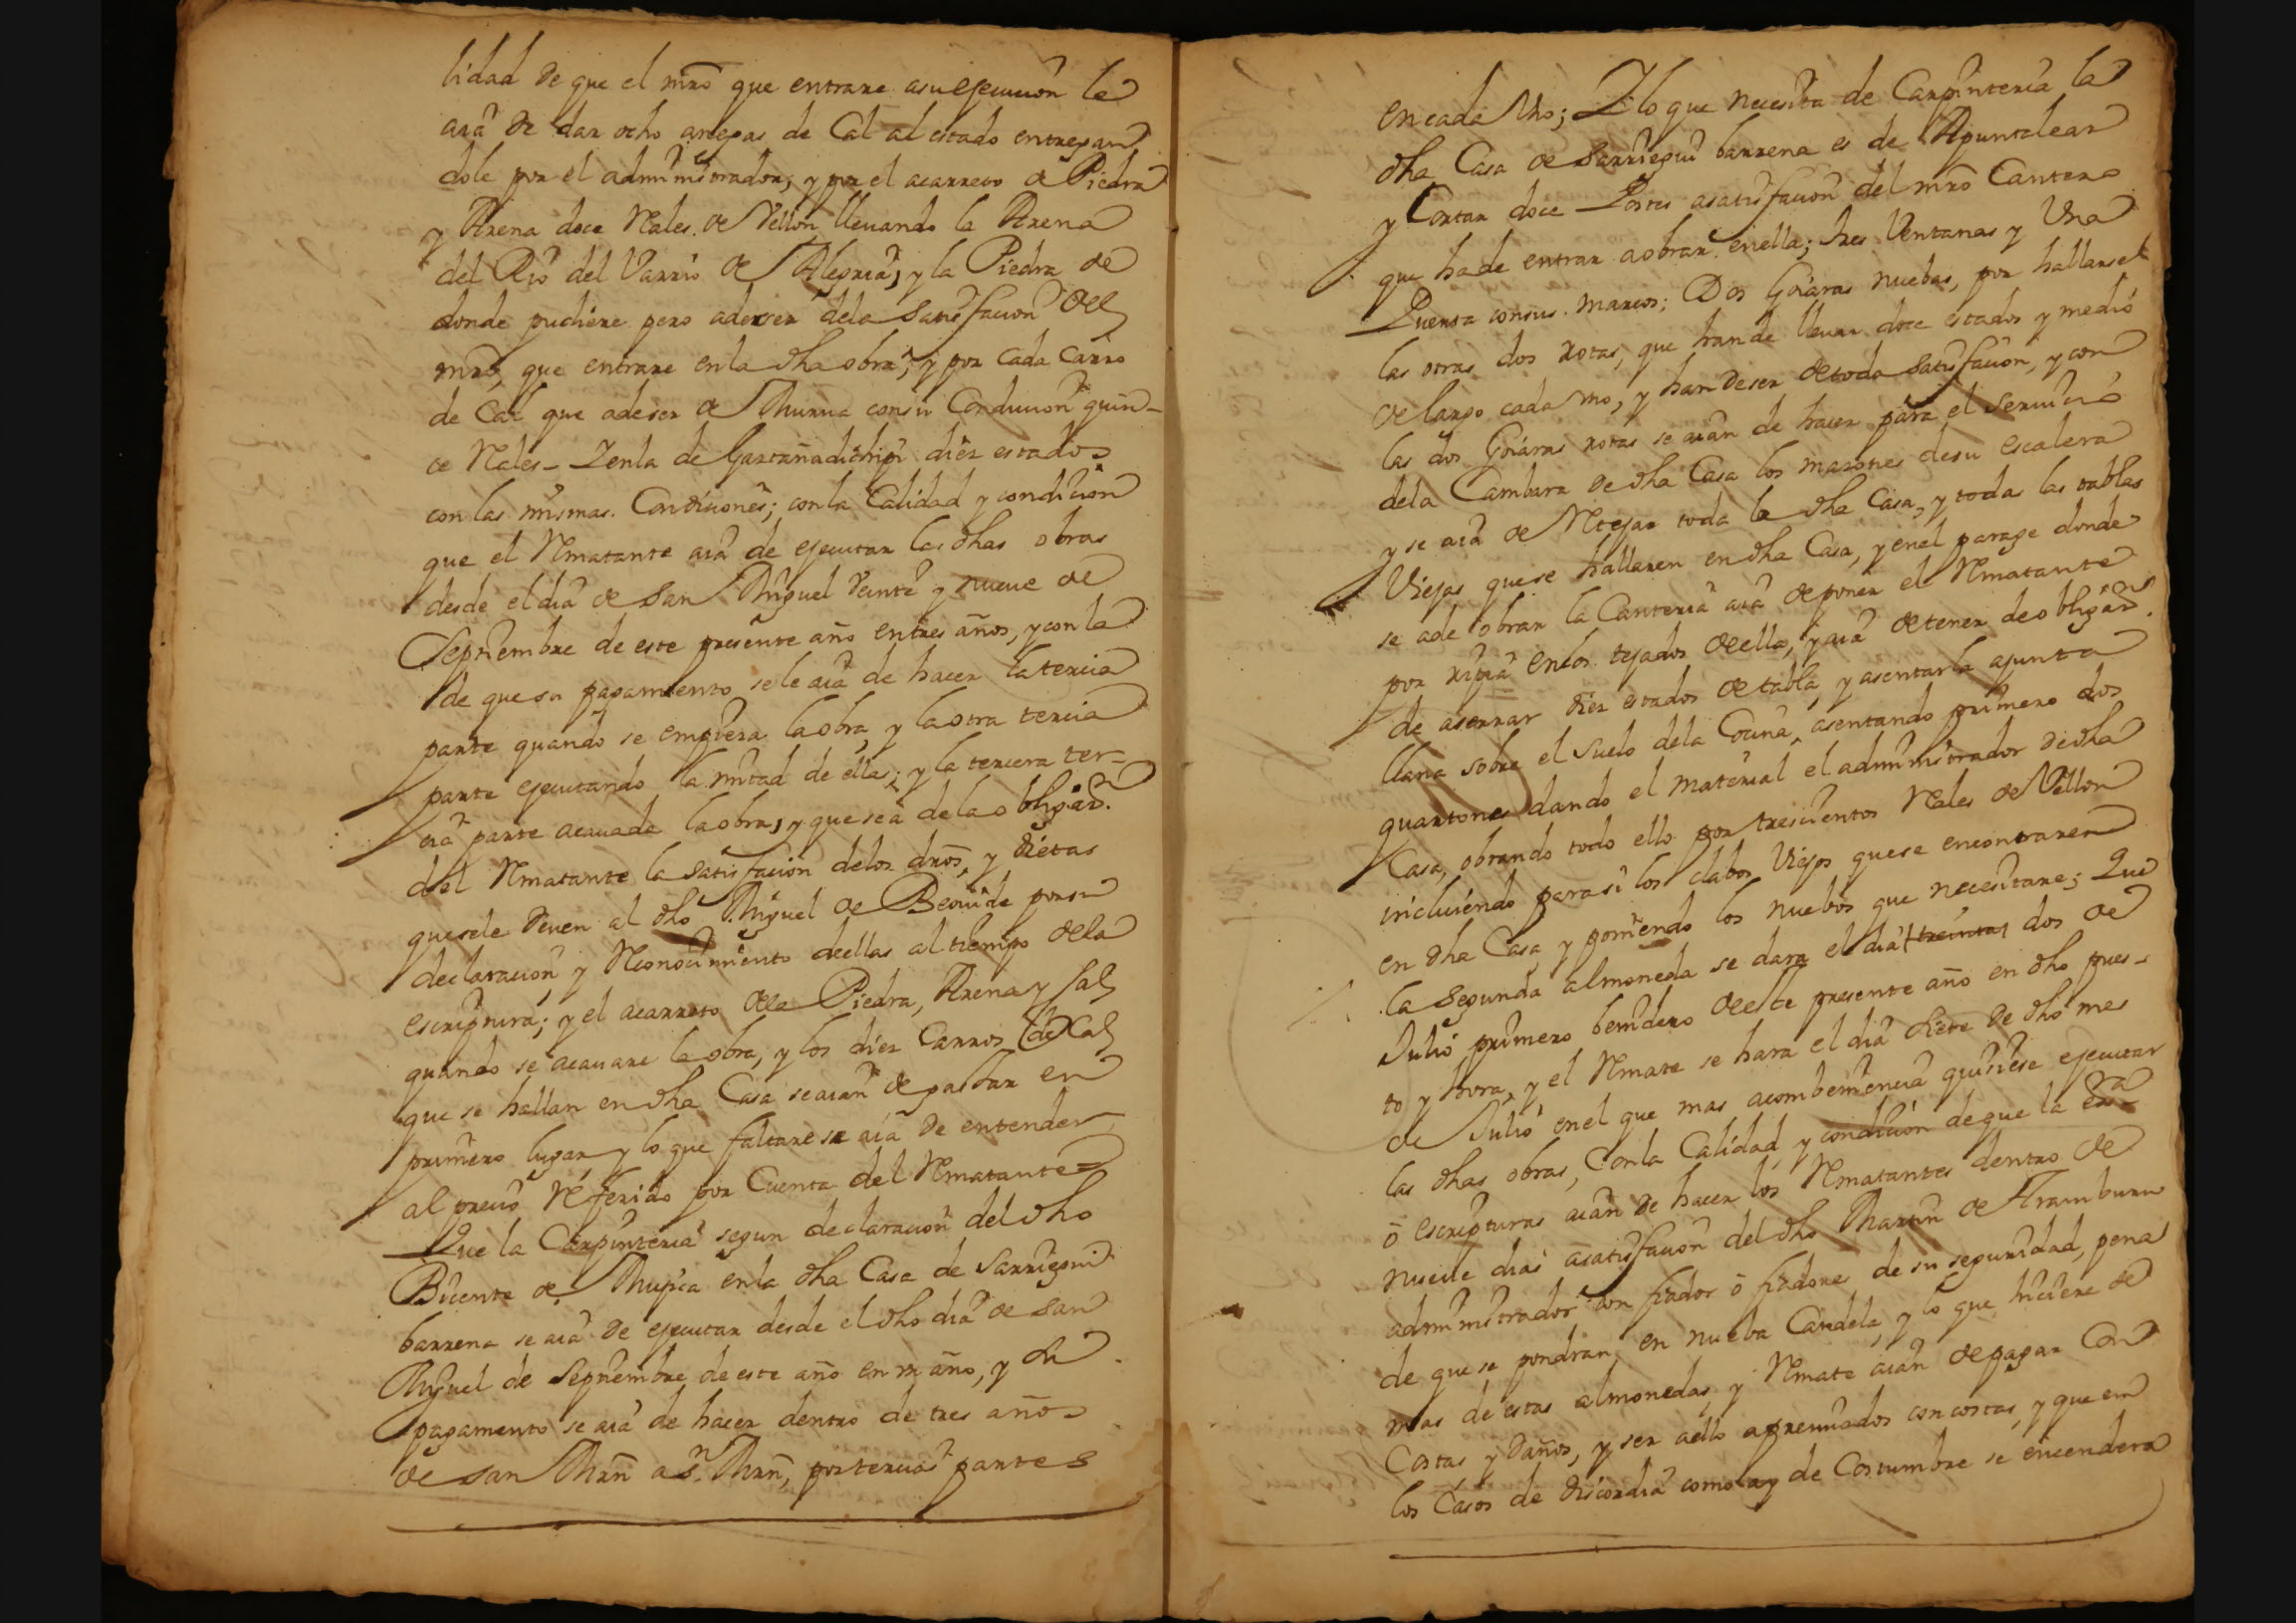 lidad de que el mrō que entrare asu ejecucion le
ará de dar ocho anegas de Cal al estado entregan
dole por el administrador, y por el acarreto de Piedra
y Arena doce Rales. de Vellon lleuando la Arena
del Rio del Varrio de Alegria, y la Piedra de
donde pudiere pero adeser dela Satisfacion del
mrō, que entrare enla dha obra, y por cada carro
de Cal que adeser de Murua consu Conducion quin-
ce Rales - Y enla de diez estados
con las mismas. Condiciones; conla Calidad y condicion
que el Rmatante ará de ejecutar las dhas obras
desde el dia de San Miguel Veinte y nueue de
Septiembre de este presente año entres años, y con la
de que su pagamiento sele ará de hacer la tercia
parte quando se empieza la obra y la otra tercia
parte ejecutando la mitad de ellas; y la tercera ter-
cia parte acauada la obra, y que sea dela obligaōn.
del Rmatante la satisfacion delos drōs, y dietas
quesele deuen al dho Miguel de Beouide porsu
declaracion y Reconocimiento deellas al tiempo dela
escriptura; y el acarreto dela Piedra, Arena y Cal
quando se acauare la obra, y los diez Carros de Cal
que se hallan en dha Casa searan de gastar en
primero lugar y lo que faltare se ará de entender
al precio Referido por Cuenta del Rmatante =
Que la Carpinteria segun declaracion del dho
Bicente de Mujica enla dha Casa de Sarriegui
barrena se ará de ejecutar desde el dho dia de San
Miguel de Septiembre de este año en vn año, y su
pagamento se ará de hacer dentro de tres años
de san Mrñ a Sn. Mrñ, por tercias partes
en cada Vno; Y lo que necesita de Carpinteria la
dha Casa de Sarriegui barrena es de Apuntelear
y Cortar doce Postes asatisfacion del mrō Cantero
que hade entrar aobrar enella; tres Ventanas y Vna
Puerta consus. marcos; Dos Goiaras nuebas, por hallarse
las otras dos rotas, que hande lleuar doce estados y medio
de largo cada vno, y handeser detoda satisfacion, y con
las dos Goiaras rotas se arán de hacer para el seruicio
dela Cambara de dha Casa los mazones desu escalera
y se ará de Retejar toda la dha Casa, y todas las tablas
Viejas quese hallaren en dha Casa, y enel parage donde
se ade obrar la Canteria ará de poner el Rmatante
por ripia enlos tejados deella, y ará detener de obligaōn.
de aserrar diez estados de tabla, y asentarla ajunta
llana sobre el suelo dela Cocina, asentando primero dos
quartones dando el material el administrador dedha
Casa, obrando todo ello por trescientos Rales de Vellon
incluiendo parasi los clabos Viejos quese encontraren
en dha Casa, y poniendo los nuebos que necesitare; Que
la segunda almoneda se dara el dia dos de
Julio primero benidero deeste presente año en dho pues-
to y hora, y el Rmate se hara el dia siete de dho mes
de Julio enel que mas acombeniencia quisiese ejecutar
las dhas obras, Conla Calidad, y condicion de que la Esra
ō escripturas arán de hacer los Rmatantes dentro de
nueue dias asatisfacion del dho Martin de Aramburu
administrador con fiador ō fiadores de su seguridad, pena
de que se pondran en nueba Candela, y lo que hiciere de
mas de estas almonedas, y Rmate arán de pagar Con
Costas y daños, y ser aello apremiados con costas, y que en
los Casos de discordia como ay de Costumbre se encendera